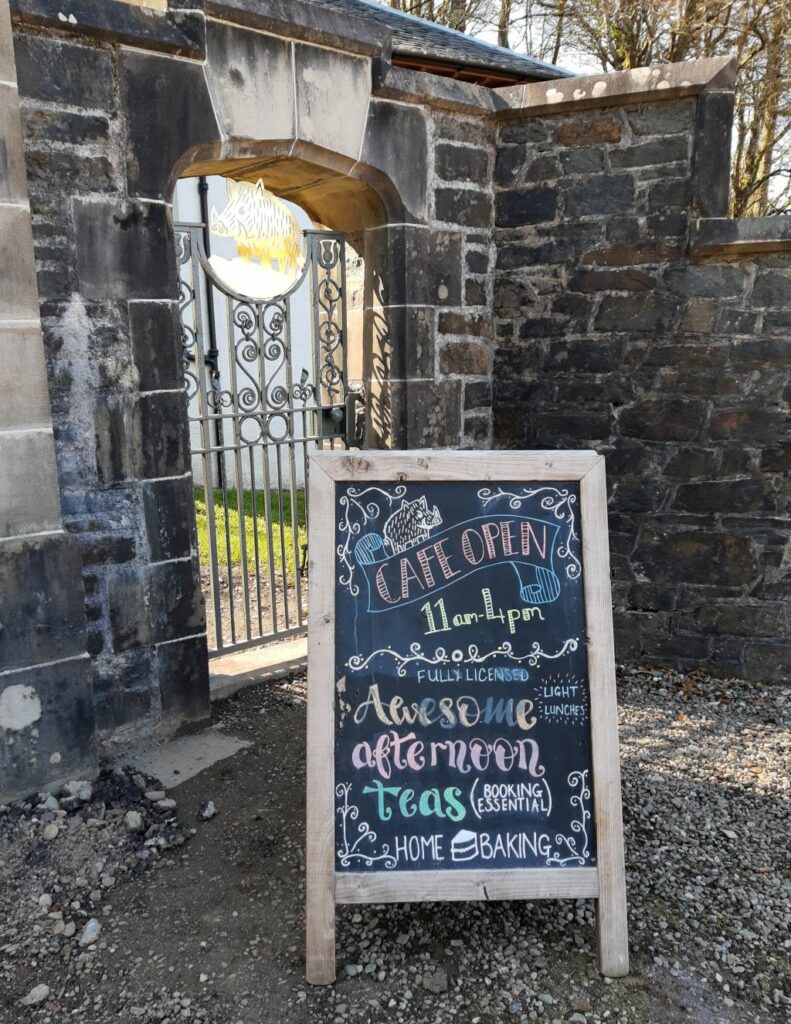 CAFE OPEN
11am-4pm
FULLY LICENSED
Awesome
LIGHT
LUNCHES
afternoon
teas (BOOKING
ESSENTIAL)
HOME BAKING